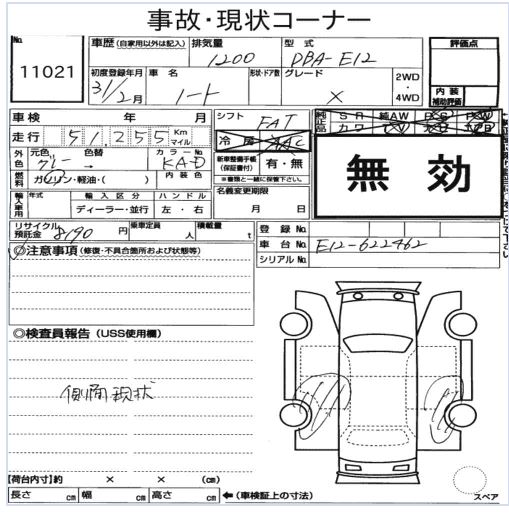 事故・現状コーナー
No. 11021
車歴 (自家用以外は記入) 排気量 1200 型式 DBA-E12 評価点
初度登録年月 31/2月 車名 ノート 形状・ドア数 グレード X 2WD・4WD 内装 補助評価
車検 年 月 シフト FAT
走行 51,255 Km マイル 冷房 AAC
純正品 SR 純AW PS PW カワ TV
外色 元色 グレー 色替 → カラーNo. KAD 新車整備手帳 (保証書付) 有・無
※書類と一緒に保管下さい。
無効
燃料 ガソリン・軽油・( )
名義変更期限 月 日
輸入車用 年式 輸入区分 ディーラー・並行 ハンドル 左・右
リサイクル預託金 8190 円 乗車定員 人 積載量 t
登録No.
車台No. E12-622462
シリアルNo.
◎注意事項 (修復・不具合箇所および状態等)
◎検査員報告 (USS使用欄)
側面現状
スペア
【荷台内寸】約 × × (cm)
長さ cm 幅 cm 高さ cm ←(車検証上の寸法)